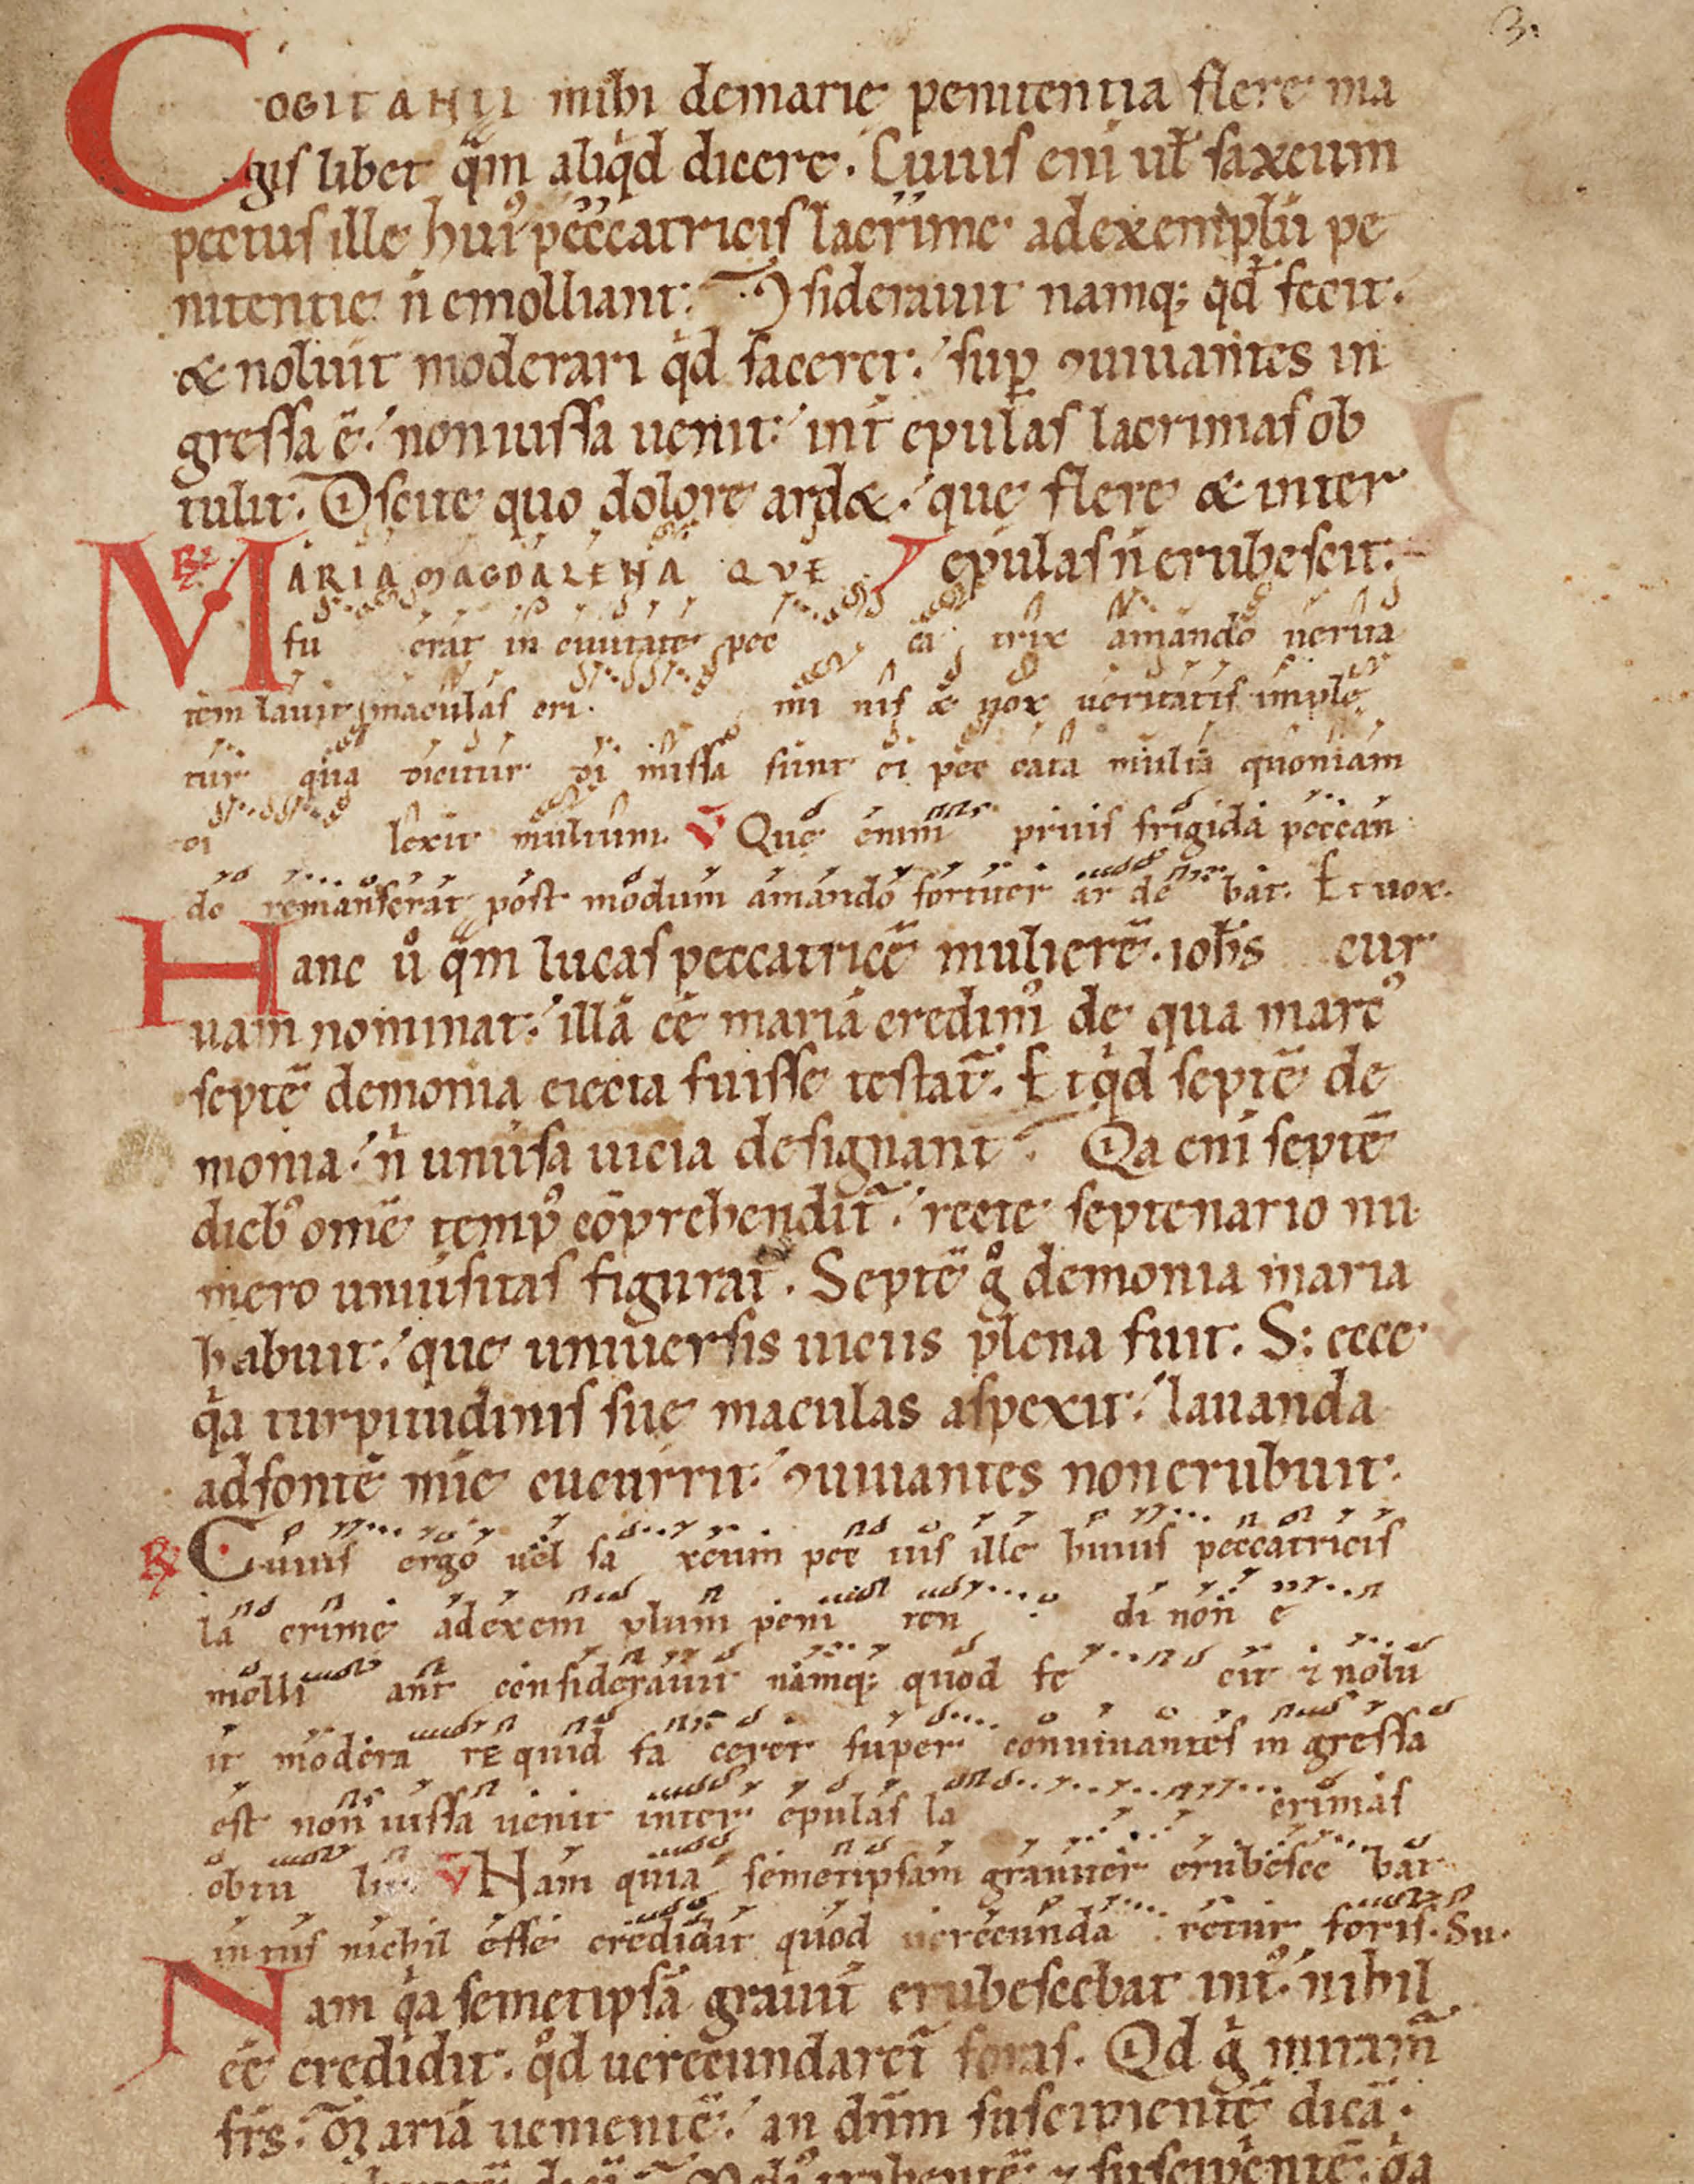 3.
COGITANTI mihi demarię penitentia flere ma
gis libet qͣm aliqͥd dicere. Cuius eni ul̃ saxeum
pectus illę hui᷒ peccatricis lacrime adexemplū pe
nitentię n̄ emolliant. Ꝯsiderauit namq; qđ fecit.
& noluit moderari qͥd faceret. suꝑ ꝯuiuantes in
gressa ē. non iussa uenit. int̄ epulas lacrimas ob
tulit. Discite quo dolore ard&. quę flere & inter
epulas n̄ erubescit.
℟ MARIA MAGDALENA QVE
fu erat in ciuitate pec ca trix amando uerita
tem lauit maculas cri mi nis & uox ueritatis imple
tur qua dicitur di missa sunt ei pec cata multa quoniam
di lexit multum. V̄ Quę enim prius frigida peccan
do remanserat post modum amando fortiter ar de bat. Et uox.
Hanc ů qͣm lucas peccatricē mulierē. ioh̄s cur
uam nominat. illā eē mariā credim᷒ de qua marc᷒
septē demonia eiecta fuisse testat̄. Et qͥd septē de
monia. n̄ uniúsa uicia designant. Qͥa eni septē
dieb᷒ omē temp᷒ cōprehendit̄. recte septenario nu
mero uniúsitas figurat̄. Septē g̊ demonia maria
habuit. quę uniuersis uiciis plena fuit. S; ecce
qͥa turpitudinis suę maculas aspexit. lauanda
adfontē mi͞e cucurrit. ꝯuiuantes non erubuit.
℟ Cuius ergo uel sa xeum pec tus ille huius peccatricis
la crime adexem plum peni ten di non e
molli ant considerauit namq; quod fe cit ⁊ nolu
it modera rE quid fa ceret super conuiuantes in gressa
est non iussa uenit inter epulas la crimas
obtu lit V̄ Nam quia semetipsam grauiter erubesce bat
intus nichil esse credidit quod uerecunda retur foris. Su.
Nam qͥa semetipsā grauit̄ erubescebat int᷒. nihil
eē credidit. qͦd uerecundaret̄ foras. Qͥd g̊ miram̄
fr̄s. Mariā uenientē. an dn̄m suscipientē dicā.